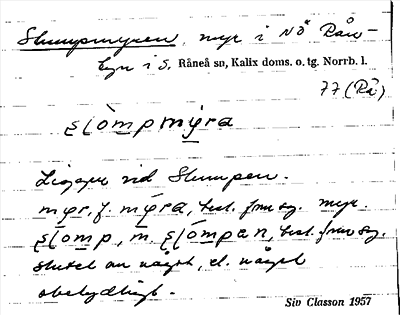 Slumpmyren, myr i NÖ Rån-
byn i S. Råneå sn, Kalix doms. o. tg. Norrb. l.
77 (Rå)
slòmpmýra
Ligger vid Slumpen.
myr, f. mýra, best. form sg. myr.
slomp, m. slòmpan, best. form sg.
slutet av något, el. något
obetydligt.
Siv Classon 1957